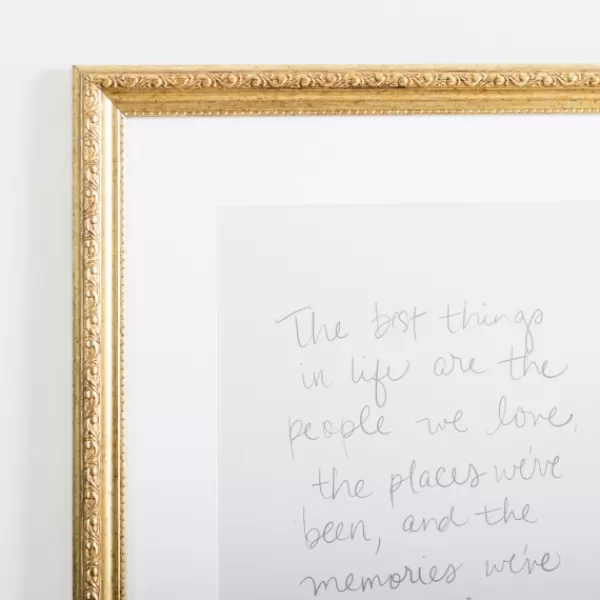 The best things
in life are the
people we love,
the places we've
been, and the
memories we've